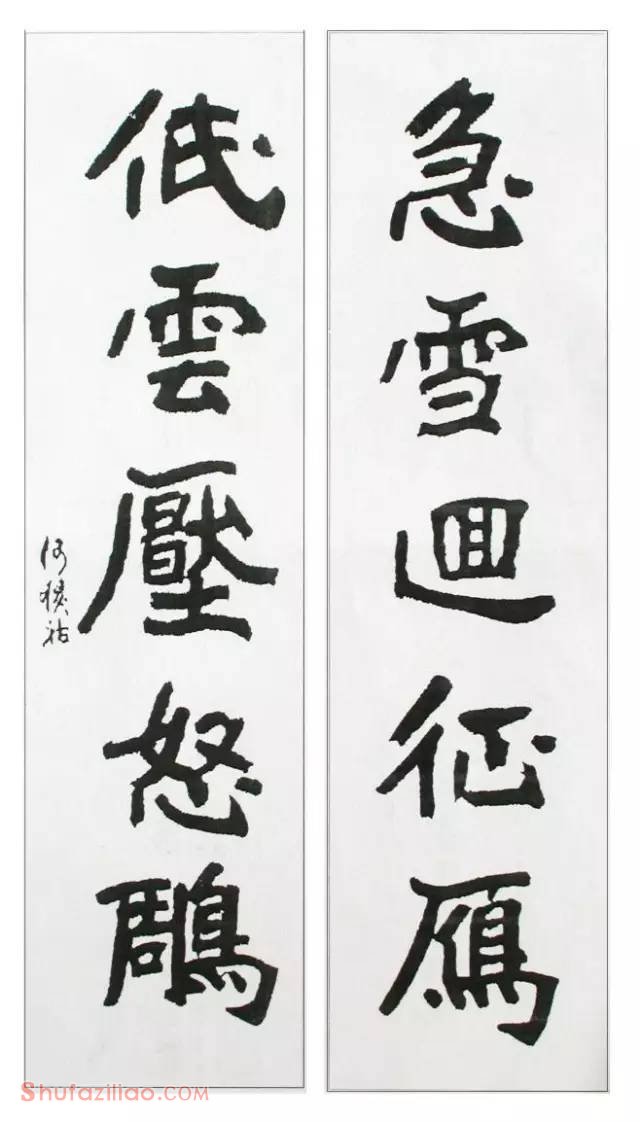 急雪迴征鴈
低雲壓怒鵰
Shufaziliao.COM